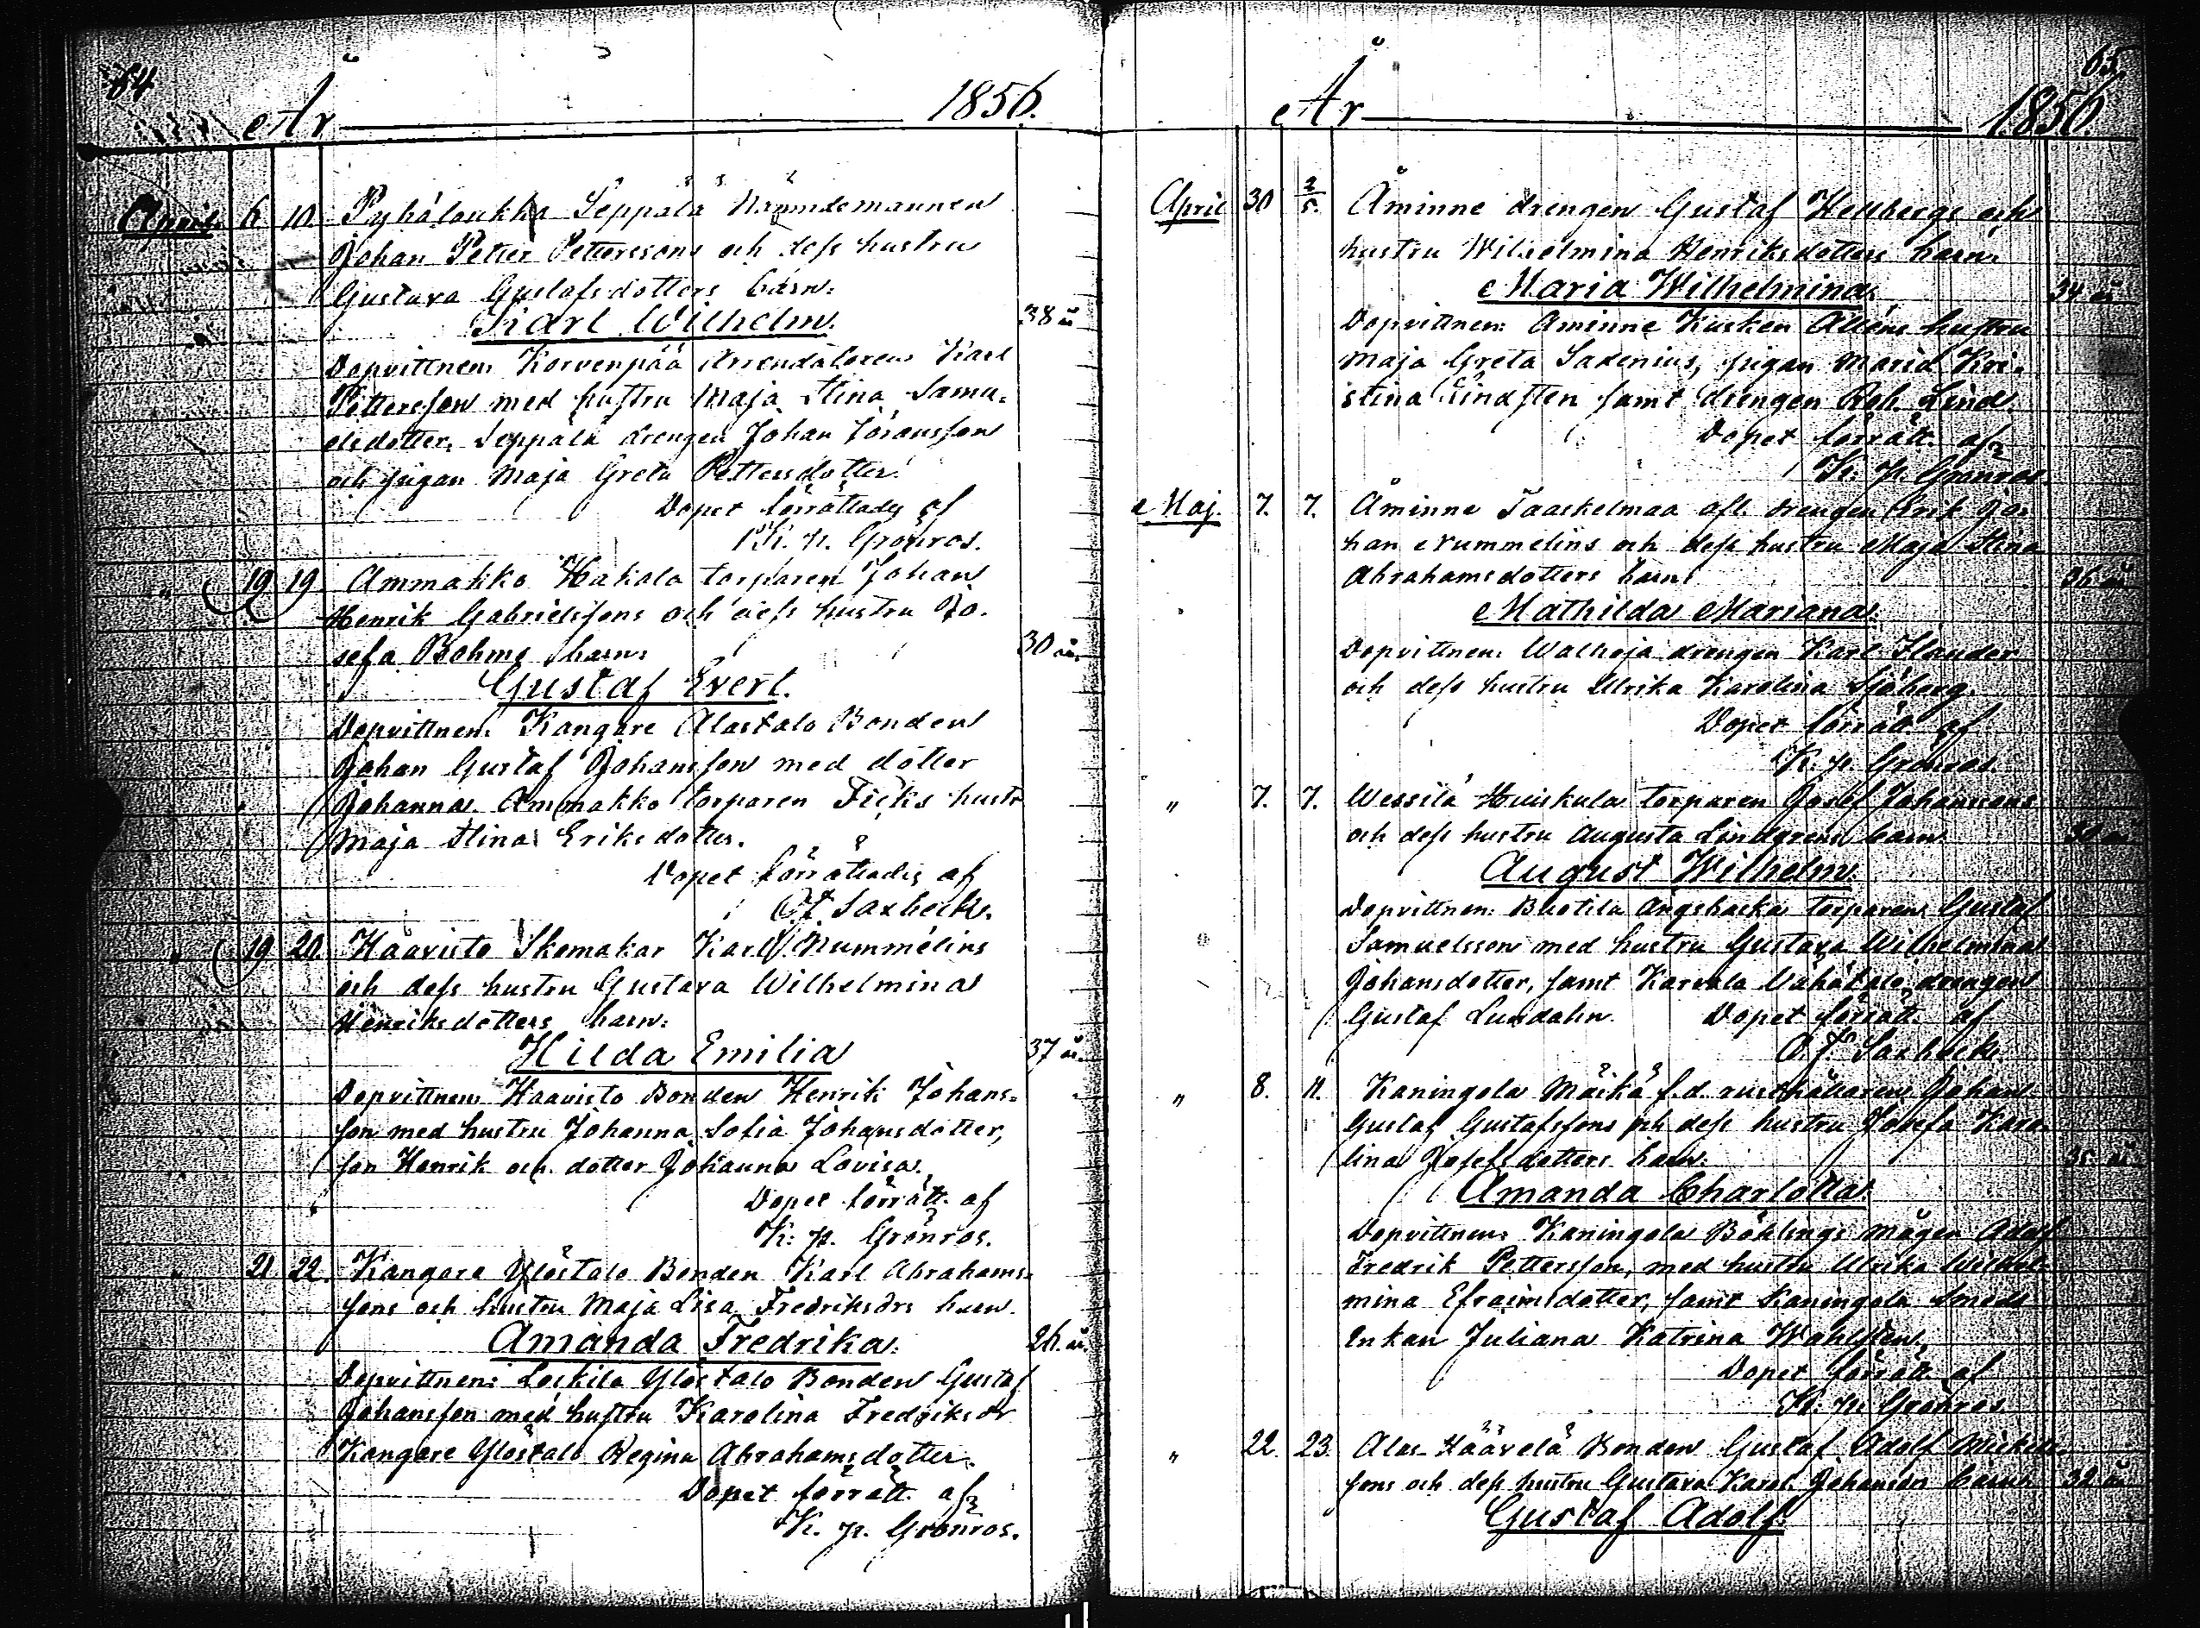 64
År 1856.
April. 6 10. Pyhäloukka Seppälä Nämndemannen
Johan Petter Petterssons och dess hustru
Gustava Gustafsdotters barn:
Karl Wilhelm. 38 år
Dopvittnen: Korvenpää Arrendatoren Karl
Pettersson med hustru Maja Stina Samu-
elsdotter, Seppälä drengen Johan Göransson
och pigan Maja Greta Pettersdotter.
Dopet förrättades af
K. p. Grönros.
" 19 19 Ammakko Hakala torparen Johan
Henrik Gabrielssons och dess hustru Jo-
sefa Böhms barn: 30 år.
Gustaf Evert.
Dopvittnen: Kangare Alastalo Bonden
Johan Gustaf Johansson med dotter
Johanna. Ammakko torparen Ficks hustr
Maja Stina Eriksdotter.
Dopet förrättades af
O. J. Saxbeck.
" 19 20. Haavisto Skomakar Karl Nummelins
och dess hustru Gustava Wilhelmina
Henriksdotters barn:
Hilda Emilia 37 år.
Dopvittnen: Haavisto Bonden Henrik Johans-
son med hustru Johanna Sofia Johansdotter,
son Henrik och dotter Johanna Lovisa.
Dopet förrätt. af
K. p. Grönros.
" 21 22. Kangare Ylöstalo Bonden Karl Abrahams-
sons och hustru Maja Lisa Fredriksdrs barn.
Amanda Fredrika. 26 år.
Dopvittnen: Loskila Ylöstalo Bonden Gustaf
Johansson med hustru Karolina Fredriksdr
Kangare Ylöstalo Regina Abrahamsdotter.
Dopet förrätt. af
K. p. Grönros.
65
År 1856.
April 30 2/5. Åminne drengen Gustaf Hellbergs och
hustru Wilhelmina Henriksdotters barn:
Maria Wilhelmina. 34 år
Dopvittnen: Åminne Kusken Alléns hustru
Maja Greta Saxenius, pigan Maria Kri-
stina Lindsten samt drengen Rob. Lind.
Dopet förrätt. af
K. p. Grönros.
Maj. 7. 7. Åminne Taaskelmaa afl. drengen Erik Jo-
han Nummelins och dess hustru Maja Stina
Abrahamsdotters barn: 36 år
Mathilda Mariana.
Dopvittnen: Walhoja drengen Karl Flander
och dess hustru Ulrika Karolina Sjöberg.
Dopet förrätt. af
K. p. Grönros.
" 7. 7. Wessilä Huiskula torparen Josef Johanssons
och dess hustru Augusta Lindgrens barn
August Wilhelm.
Dopvittnen: Buotila Ängsbacka torparen Gustaf
Samuelsson med hustru Gustava Wilhelmina
Johansdotter, samt Karvala Vähätalo drengen
Gustaf Lundahn. Dopet förrätt. af
O. J. Saxbeck.
" 8. 11. Kaningola Mäikä f.d. rusthållaren Johan
Gustaf Gustafssons och dess hustru Josefa Karo-
lina Josefsdotters barn: 35 år
Amanda Charlotta.
Dopvittnen: Kaningola Böhlings mågen Adolf
Fredrik Pettersson, med hustru Ulrika Wilhel-
mina Efraimsdotter, samt Kaningola smeds
Enkan Juliana Katrina Wahlsten.
Dopet förrätt. af
K. p. Grönros.
" 22. 23. Alas Häävelä Bonden Gustaf Adolf Mickels-
sons och dess hustru Gustava Karol. Johansdr barn: 32 år
Gustaf Adolf.